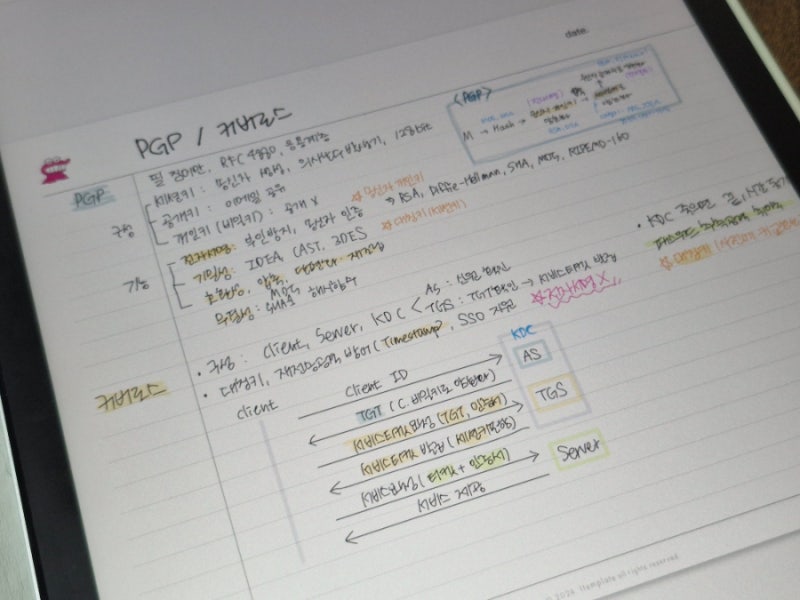 date.
PGP / 커버로스
<PGP>
M → Hash →
PGP
필 짐머만, RFC 4880, 응용계층
구성
세션키 : 송신자 생성, 의사난수 발생기, 128bit
공개키 : 이메일 공유
개인키 (비밀키) : 공개 X
☆ 송신자 개인키
기능
전자서명 : 부인방지, 송신자 인증 → RSA, Diffie-Hellman, SHA, MD5, RIPEMD-160
기밀성 : IDEA, CAST, 3DES
☆ 대칭키(세션키)
호환성, 압축, 단편화·재조립
무결성 : MD5, SHA 해시함수
커버로스
• 구성 : Client, Server, KDC <
AS : 신원 확인
TGS : TGT 확인 → 서비스티켓 발급
• 대칭키, 재전송공격 방어(Timestamp), SSO 지원
☆ 전자서명 X
• KDC
패스워드 추측공격 취약
☆ 대칭키
KDC
AS
TGS
Server
client
Client ID
TGT (C. 비밀키로 암호화)
서비스티켓 요청 (TGT, 인증자)
서비스티켓 발급 (세션키 포함)
서비스 요청 (티켓 + 인증자)
서비스 제공
© 2024. Itemplate all rights reserved.